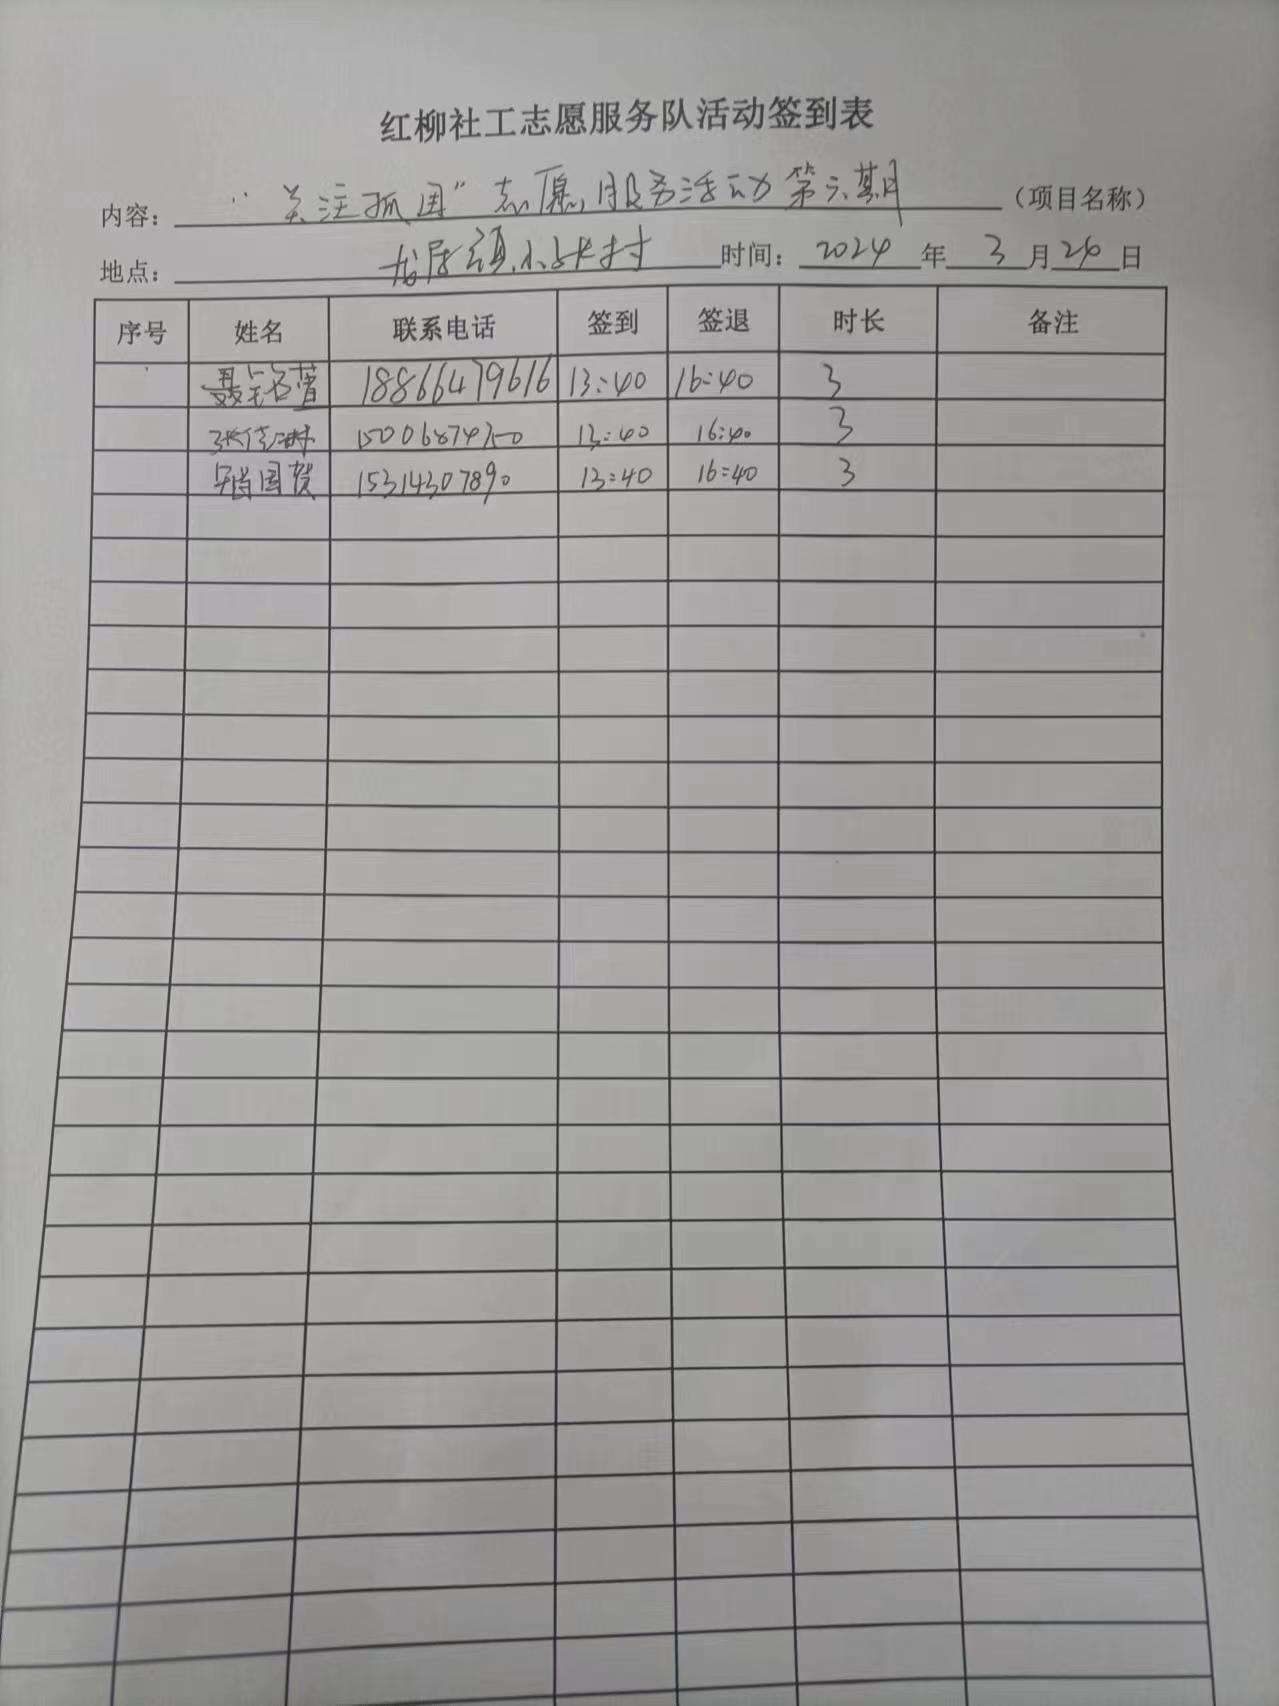 红柳社工志愿服务队活动签到表
内容：“关注孤困”志愿服务活动第六期（项目名称）
地点：龙居镇小张村 时间：2024年3月26日
序号 姓名 联系电话 签到 签退 时长 备注
聂铭蕾 18866479616 13:40 16:40 3
张佳琳 15006874750 13:40 16:40 3
国贺 15314307890 13:40 16:40 3